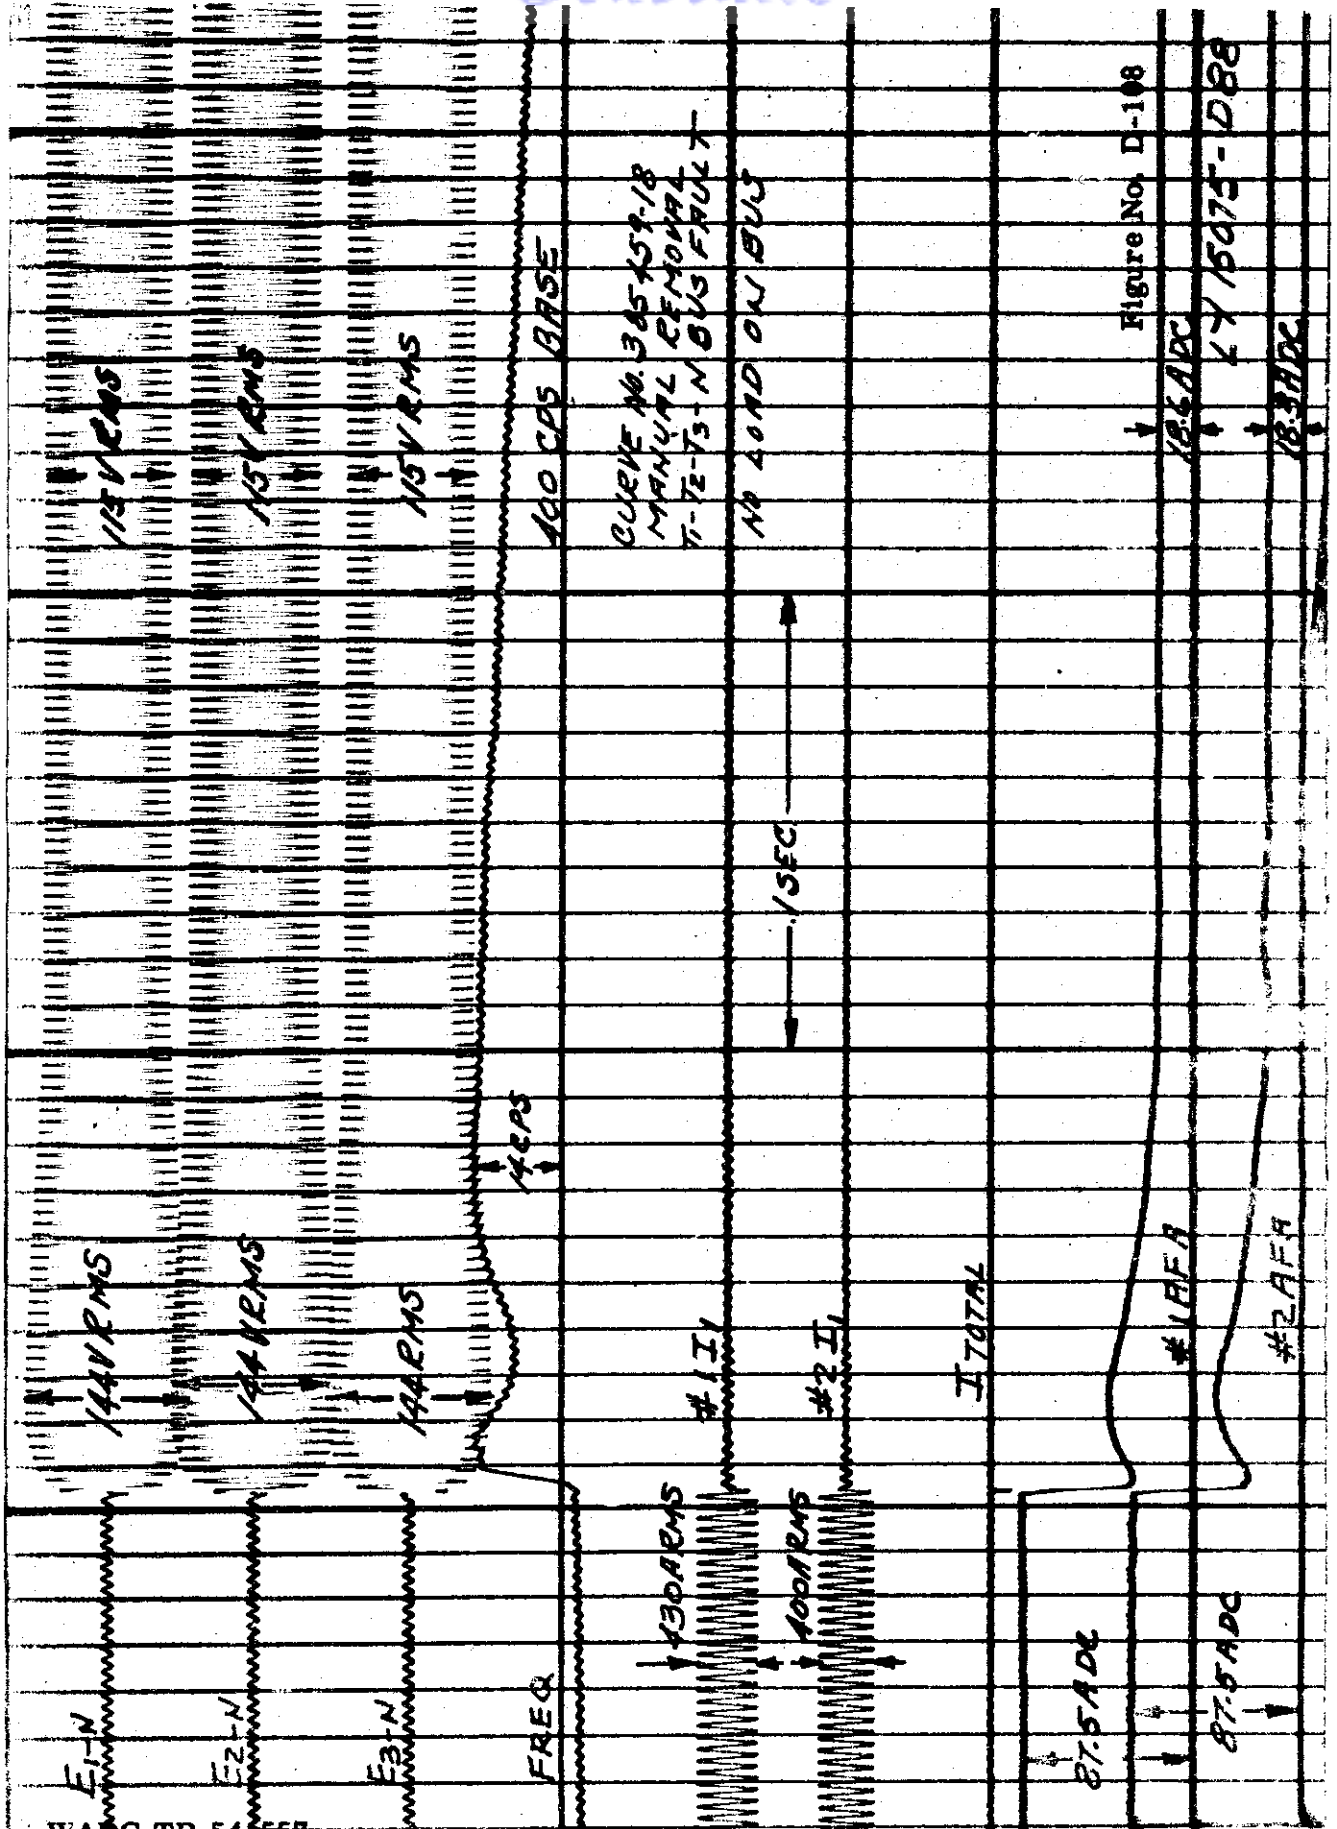 E1-N
144V RMS
115V RMS
E2-N
144 VRMS
115V RMS
E3-N
144 RMS
115V RMS
FREQ
14 CPS
400 CPS BASE
CURVE No. 365459-18
MANUAL REMOVAL
T1-T2-T3-N BUS FAULT
NO LOAD ON BUS
430 ARMS
#1 I1
.1 SEC.
400 ARMS
#2 I1
I TOTAL
Figure No. D-108
87.5 ADC
#1 AFA
18.6 ADC
LY 15075-D88
87.5 ADC
#2 AFA
18.3 ADC